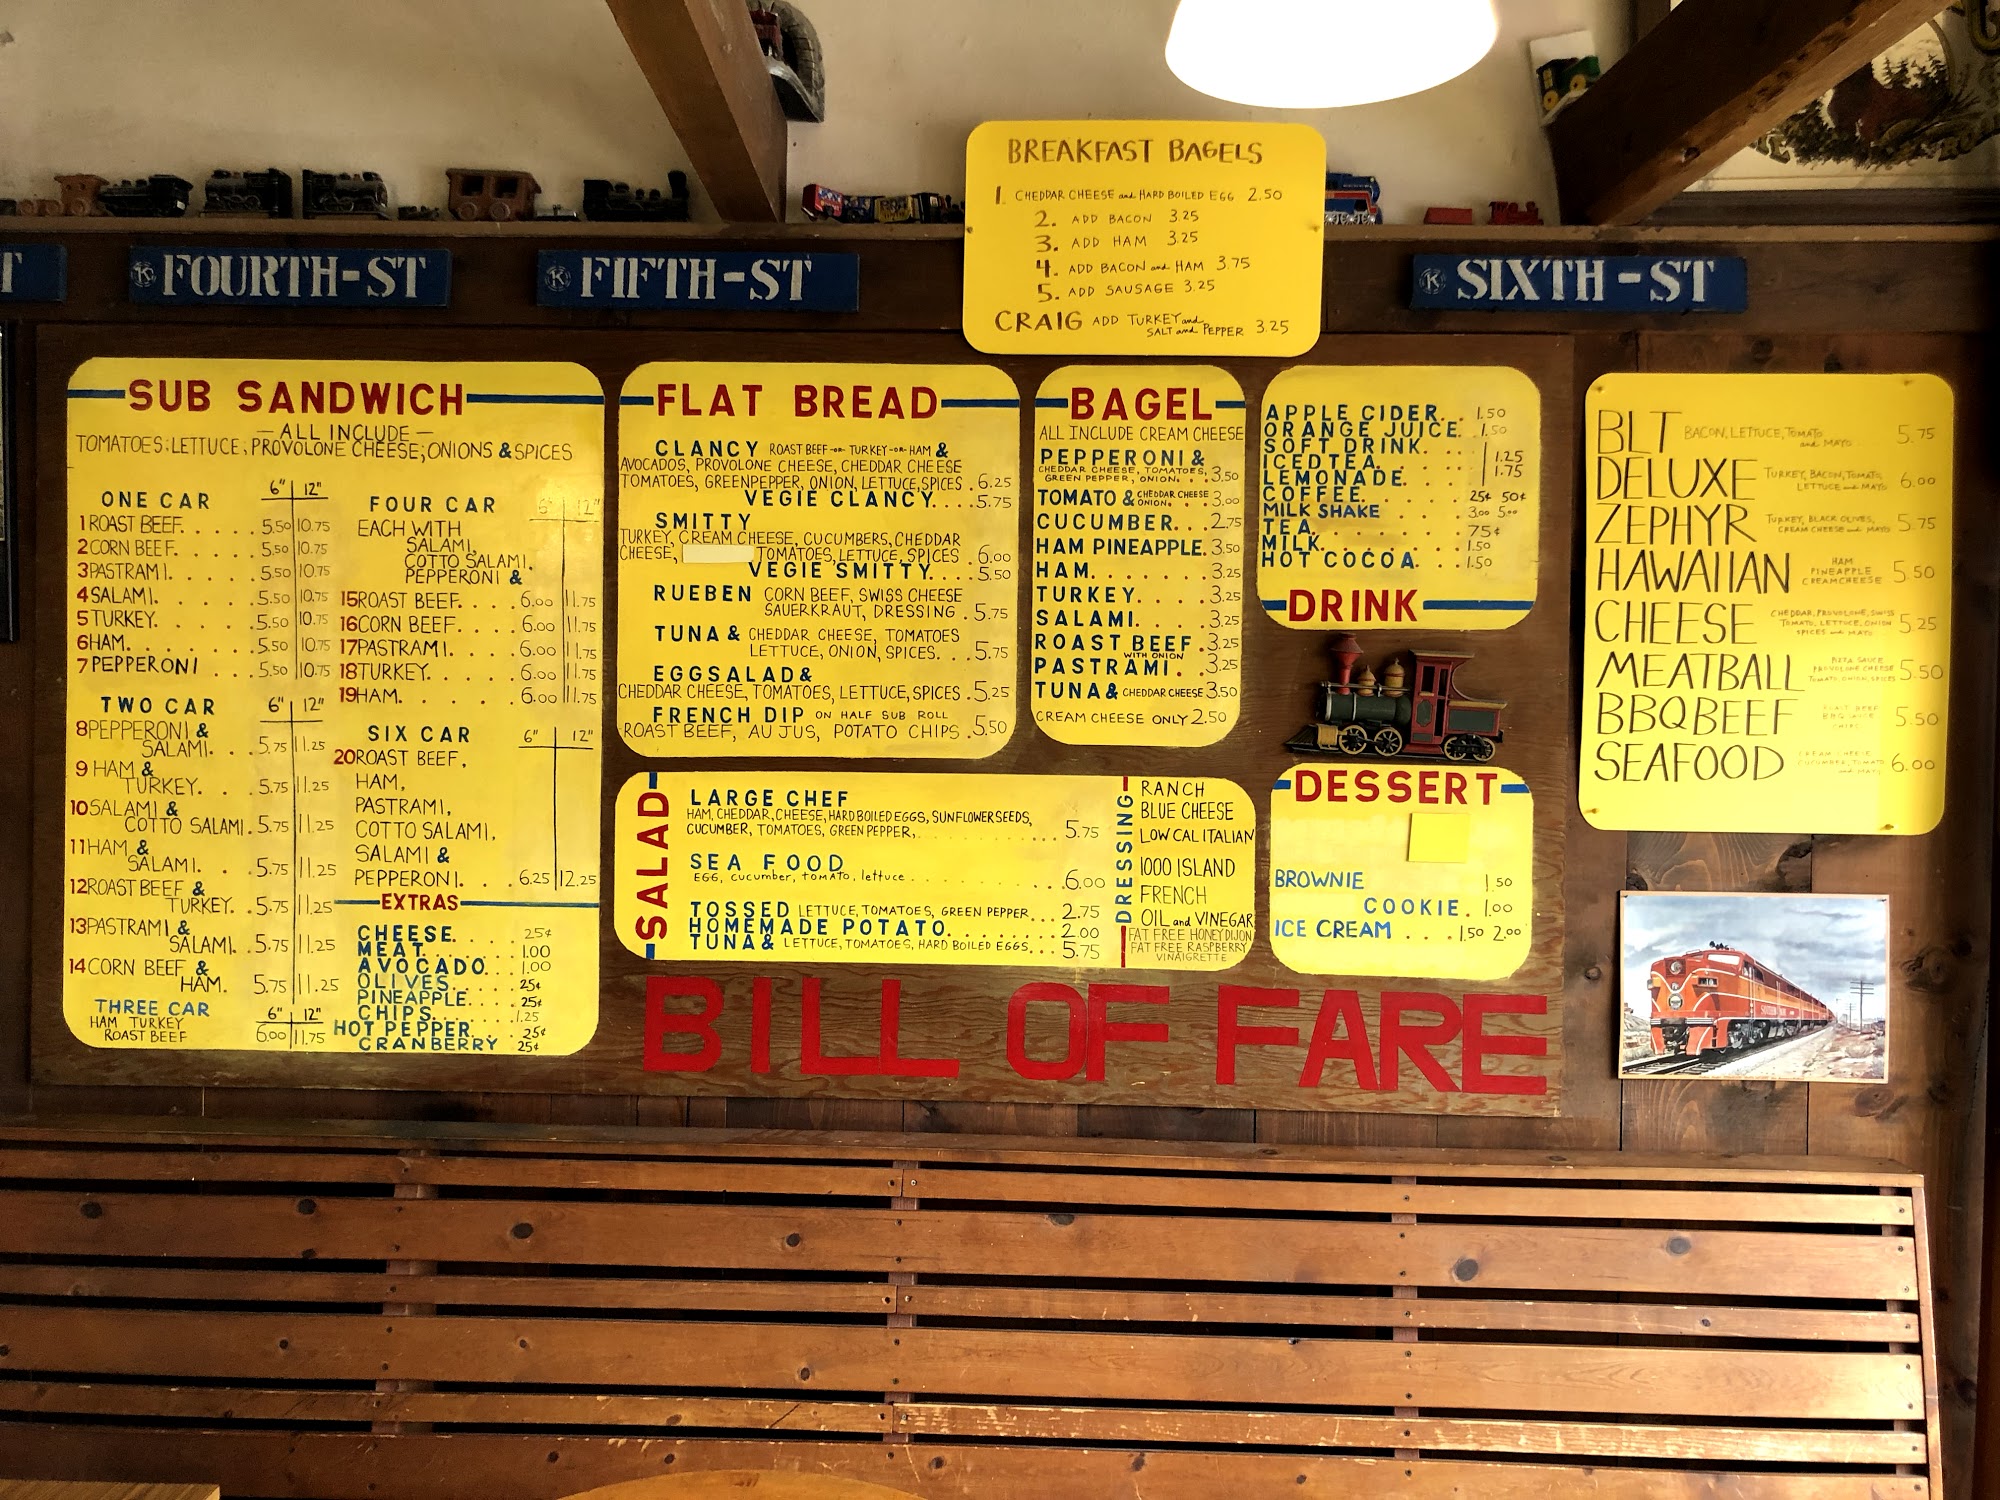 BREAKFAST BAGELS
1. CHEDDAR CHEESE and HARD BOILED EGG 2.50
2. ADD BACON 3.25
3. ADD HAM 3.25
4. ADD BACON and HAM 3.75
5. ADD SAUSAGE 3.25
CRAIG ADD TURKEY and
SALT and PEPPER 3.25
T
K FOURTH-ST
K FIFTH-ST
K SIXTH-ST
SUB SANDWICH
— ALL INCLUDE —
TOMATOES; LETTUCE; PROVOLONE CHEESE; ONIONS & SPICES
ONE CAR 6" 12"
1 ROAST BEEF. . . . . 5.50 10.75
2 CORN BEEF. . . . . 5.50 10.75
3 PASTRAMI. . . . . 5.50 10.75
4 SALAMI. . . . . 5.50 10.75
5 TURKEY. . . . . 5.50 10.75
6 HAM. . . . . 5.50 10.75
7 PEPPERONI 5.50 10.75
TWO CAR 6" 12"
8 PEPPERONI &
SALAMI. . . 5.75 11.25
9 HAM &
TURKEY. . . 5.75 11.25
10 SALAMI &
COTTO SALAMI. 5.75 11.25
11 HAM &
SALAMI. . . 5.75 11.25
12 ROAST BEEF &
TURKEY. . 5.75 11.25
13 PASTRAMI &
SALAMI. . 5.75 11.25
14 CORN BEEF &
HAM. 5.75 11.25
THREE CAR 6" 12"
HAM TURKEY
ROAST BEEF 6.00 11.75
FOUR CAR 6" 12"
EACH WITH
SALAMI,
COTTO SALAMI,
PEPPERONI &
15 ROAST BEEF. . . . 6.00 11.75
16 CORN BEEF. . . . 6.00 11.75
17 PASTRAMI. . . . 6.00 11.75
18 TURKEY. . . . 6.00 11.75
19 HAM. . . . 6.00 11.75
SIX CAR 6" 12"
20 ROAST BEEF,
HAM,
PASTRAMI,
COTTO SALAMI,
SALAMI &
PEPPERONI. . . 6.25 12.25
EXTRAS
CHEESE. . . . 25¢
MEAT. . . . 1.00
AVOCADO. . . 1.00
OLIVES. . . . 25¢
PINEAPPLE. . . . 25¢
CHIPS. . . . 1.25
HOT PEPPER. . . 25¢
CRANBERRY 25¢
FLAT BREAD
CLANCY ROAST BEEF -or- TURKEY -or- HAM &
AVOCADOS, PROVOLONE CHEESE, CHEDDAR CHEESE
TOMATOES, GREENPEPPER, ONION, LETTUCE, SPICES . 6.25
VEGIE CLANCY. . . 5.75
SMITTY
TURKEY, CREAM CHEESE, CUCUMBERS, CHEDDAR
CHEESE, TOMATOES, LETTUCE, SPICES . 6.00
VEGIE SMITTY. . . . 5.50
RUEBEN CORN BEEF, SWISS CHEESE
SAUERKRAUT, DRESSING . 5.75
TUNA & CHEDDAR CHEESE, TOMATOES
LETTUCE, ONION, SPICES. . . 5.75
EGGSALAD &
CHEDDAR CHEESE, TOMATOES, LETTUCE, SPICES . 5.25
FRENCH DIP ON HALF SUB ROLL
ROAST BEEF, AU JUS, POTATO CHIPS . 5.50
BAGEL
ALL INCLUDE CREAM CHEESE
PEPPERONI &
CHEDDAR CHEESE, TOMATOES,
GREEN PEPPER, ONION. . . 3.50
TOMATO & CHEDDAR CHEESE
ONION. . . 3.00
CUCUMBER. . . 2.75
HAM PINEAPPLE. 3.50
HAM. . . . . 3.25
TURKEY. . . . 3.25
SALAMI. . . . 3.25
ROAST BEEF . 3.25
WITH ONION
PASTRAMI . . 3.25
TUNA & CHEDDAR CHEESE 3.50
CREAM CHEESE ONLY 2.50
APPLE CIDER. . . 1.50
ORANGE JUICE. . 1.50
SOFT DRINK. . . .
ICED TEA. . . . . 1.25
LEMONADE. . . . 1.75
COFFEE. . . . . 25¢ 50¢
MILK SHAKE 3.00 5.00
TEA. . . . . . 75¢
MILK. . . . . . 1.50
HOT COCOA. . . 1.50
DRINK
BLT BACON, LETTUCE, TOMATO
and MAYO 5.75
DELUXE TURKEY, BACON, TOMATO,
LETTUCE and MAYO 6.00
ZEPHYR TURKEY, BLACK OLIVES,
CREAM CHEESE and MAYO 5.75
HAWAIIAN HAM
PINEAPPLE
CREAMCHEESE 5.50
CHEESE CHEDDAR, PROVOLONE, SWISS
TOMATO, LETTUCE, ONION
SPICES and MAYO 5.25
MEATBALL PIZZA SAUCE
PROVOLONE CHEESE
TOMATO, ONION, SPICES 5.50
BBQ BEEF ROAST BEEF
BBQ SAUCE
5.50
SEAFOOD CREAM CHEESE
CUCUMBER, TOMATO
and MAYO 6.00
SALAD
LARGE CHEF
HAM, CHEDDAR, CHEESE, HARD BOILED EGGS, SUNFLOWER SEEDS,
CUCUMBER, TOMATOES, GREEN PEPPER, . . . . . 5.75
SEA FOOD
EGG, cucumber, tomato, lettuce . . . . . 6.00
TOSSED LETTUCE, TOMATOES, GREEN PEPPER. . . 2.75
HOMEMADE POTATO. . . . . 2.00
TUNA & LETTUCE, TOMATOES, HARD BOILED EGGS. . . 5.75
DRESSING
RANCH
BLUE CHEESE
LOW CAL ITALIAN
1000 ISLAND
FRENCH
OIL and VINEGAR
FAT FREE HONEY DIJON
FAT FREE RASPBERRY
VINAIGRETTE
DESSERT
BROWNIE 1.50
COOKIE. 1.00
ICE CREAM . . . 1.50 2.00
BILL OF FARE